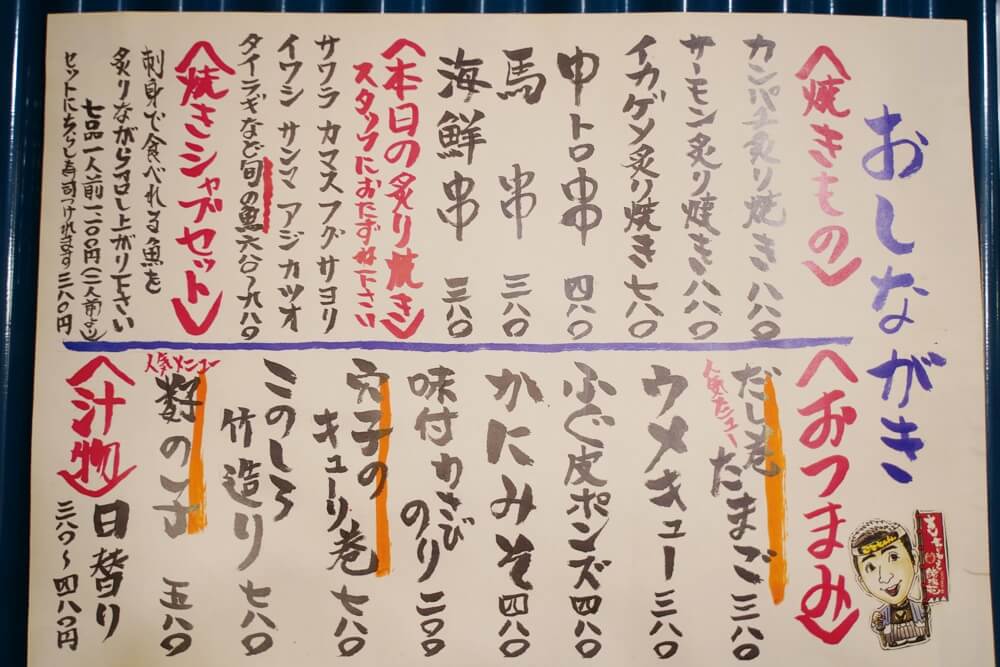 おしながき
〈焼きもの〉
カンパチ炙り焼き 八八〇
サーモン炙り焼き 八八〇
イカゲソ炙り焼き 七八〇
中トロ串 四八〇
馬串 三八〇
海鮮串 三八〇
〈本日の炙り焼き〉
スタッフにおたずね下さい
サワラ カマス フグ サヨリ
イワシ サンマ アジ カツオ
タイラギなど旬の魚 六八〇〜九八〇
〈焼きシャブセット〉
刺身で食べれる魚を
炙りながら召し上がり下さい
七品一人前一二〇〇円(二人前より)
セットにちらし寿司つけれます 三八〇円
〈おつまみ〉
だし巻たまご 三八〇
人気メニュー
ウメキュー 三八〇
ふぐ皮ポンズ 四八〇
かにみそ 四八〇
味付わさびのり 二〇〇
穴子の
キューリ巻 七八〇
このしろ
竹造り 七八〇
人気メニュー
数の子 五八〇
〈汁物〉
日替り
三八〇〜四八〇円